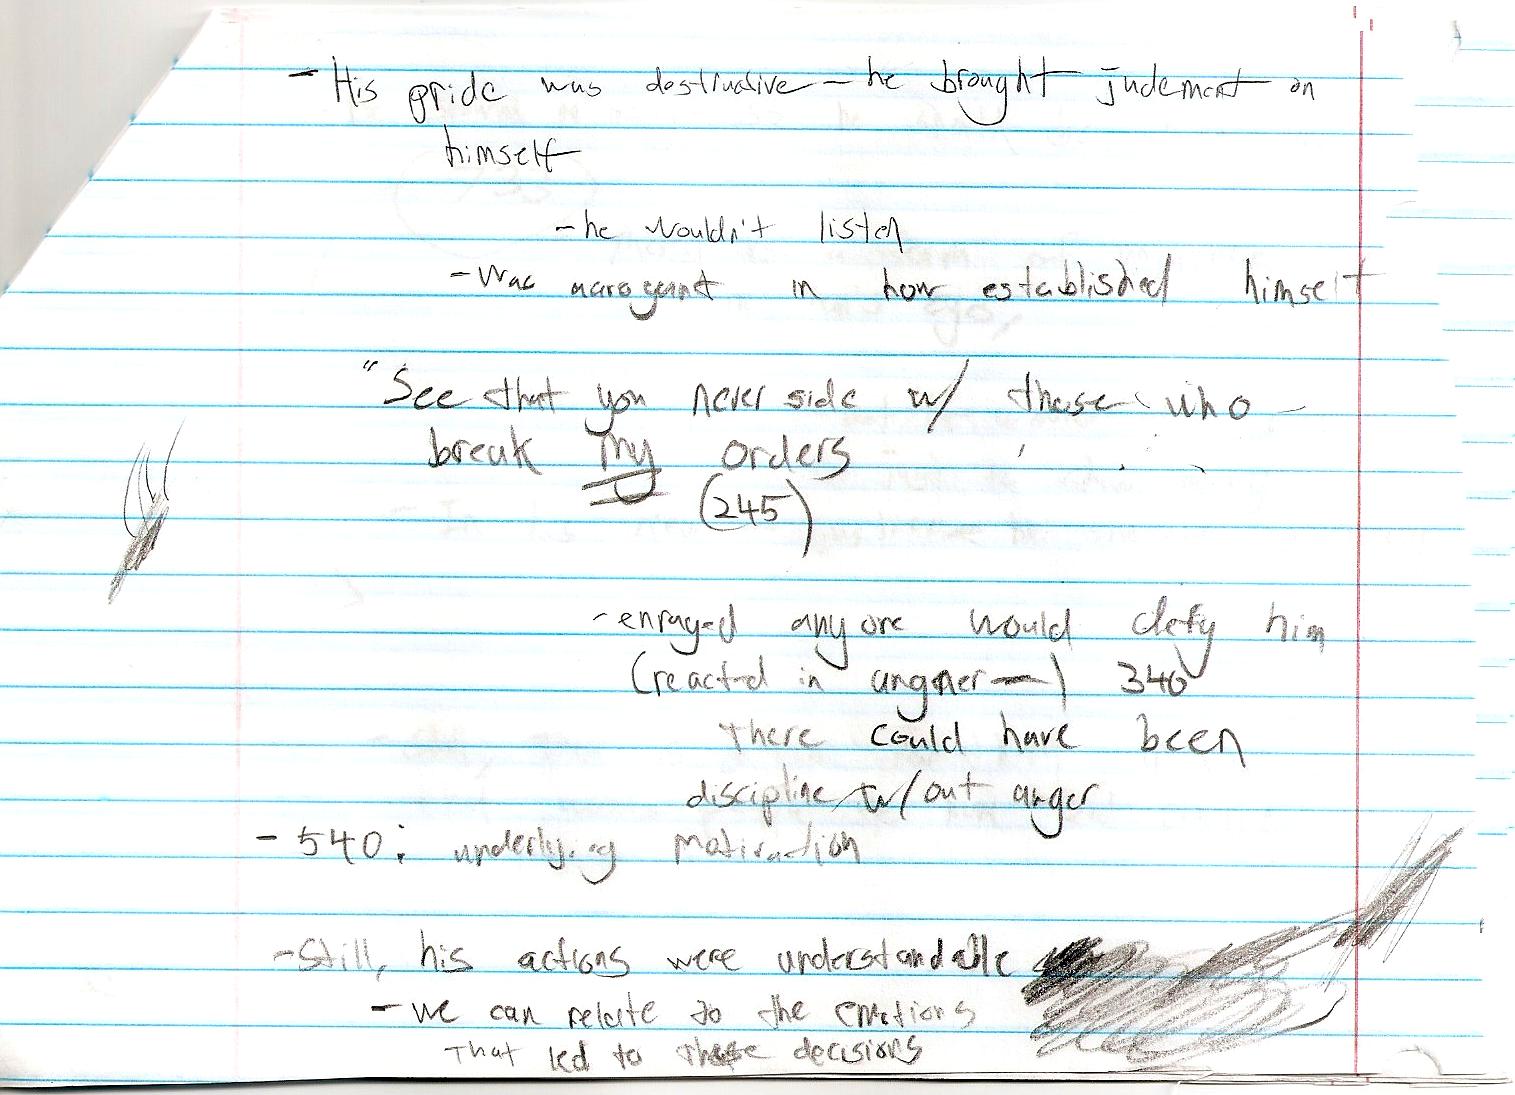 - His pride was destructive — he brought judement on
himself
- he wouldn't listen
- Was arrogant in how established himself
"See that you never side w/ those who
break my orders
(245)
- enraged anyone would defy him
(reacted in angner —) 340
There could have been
discipline w/out anger
- 540: underlying motivation
- Still, his actions were understandable
- we can relate to the emotions
That led to these decisions